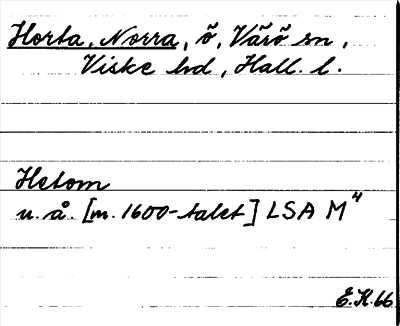 Horta, Norra, ö, Värö sn,
Viske hd, Hall. l.
Hetom
u. å. [m. 1600-talet] LSA M⁴
E.K. 66